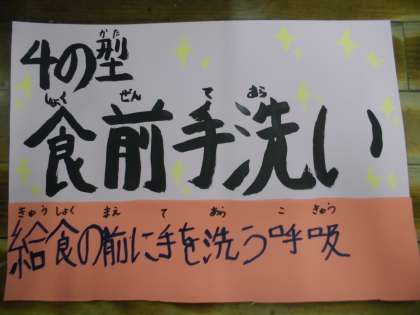 かた
4の型
しょく ぜん て あら
食前手洗い
きゅう しょく まえ て あら こ きゅう
給食の前に手を洗う呼吸